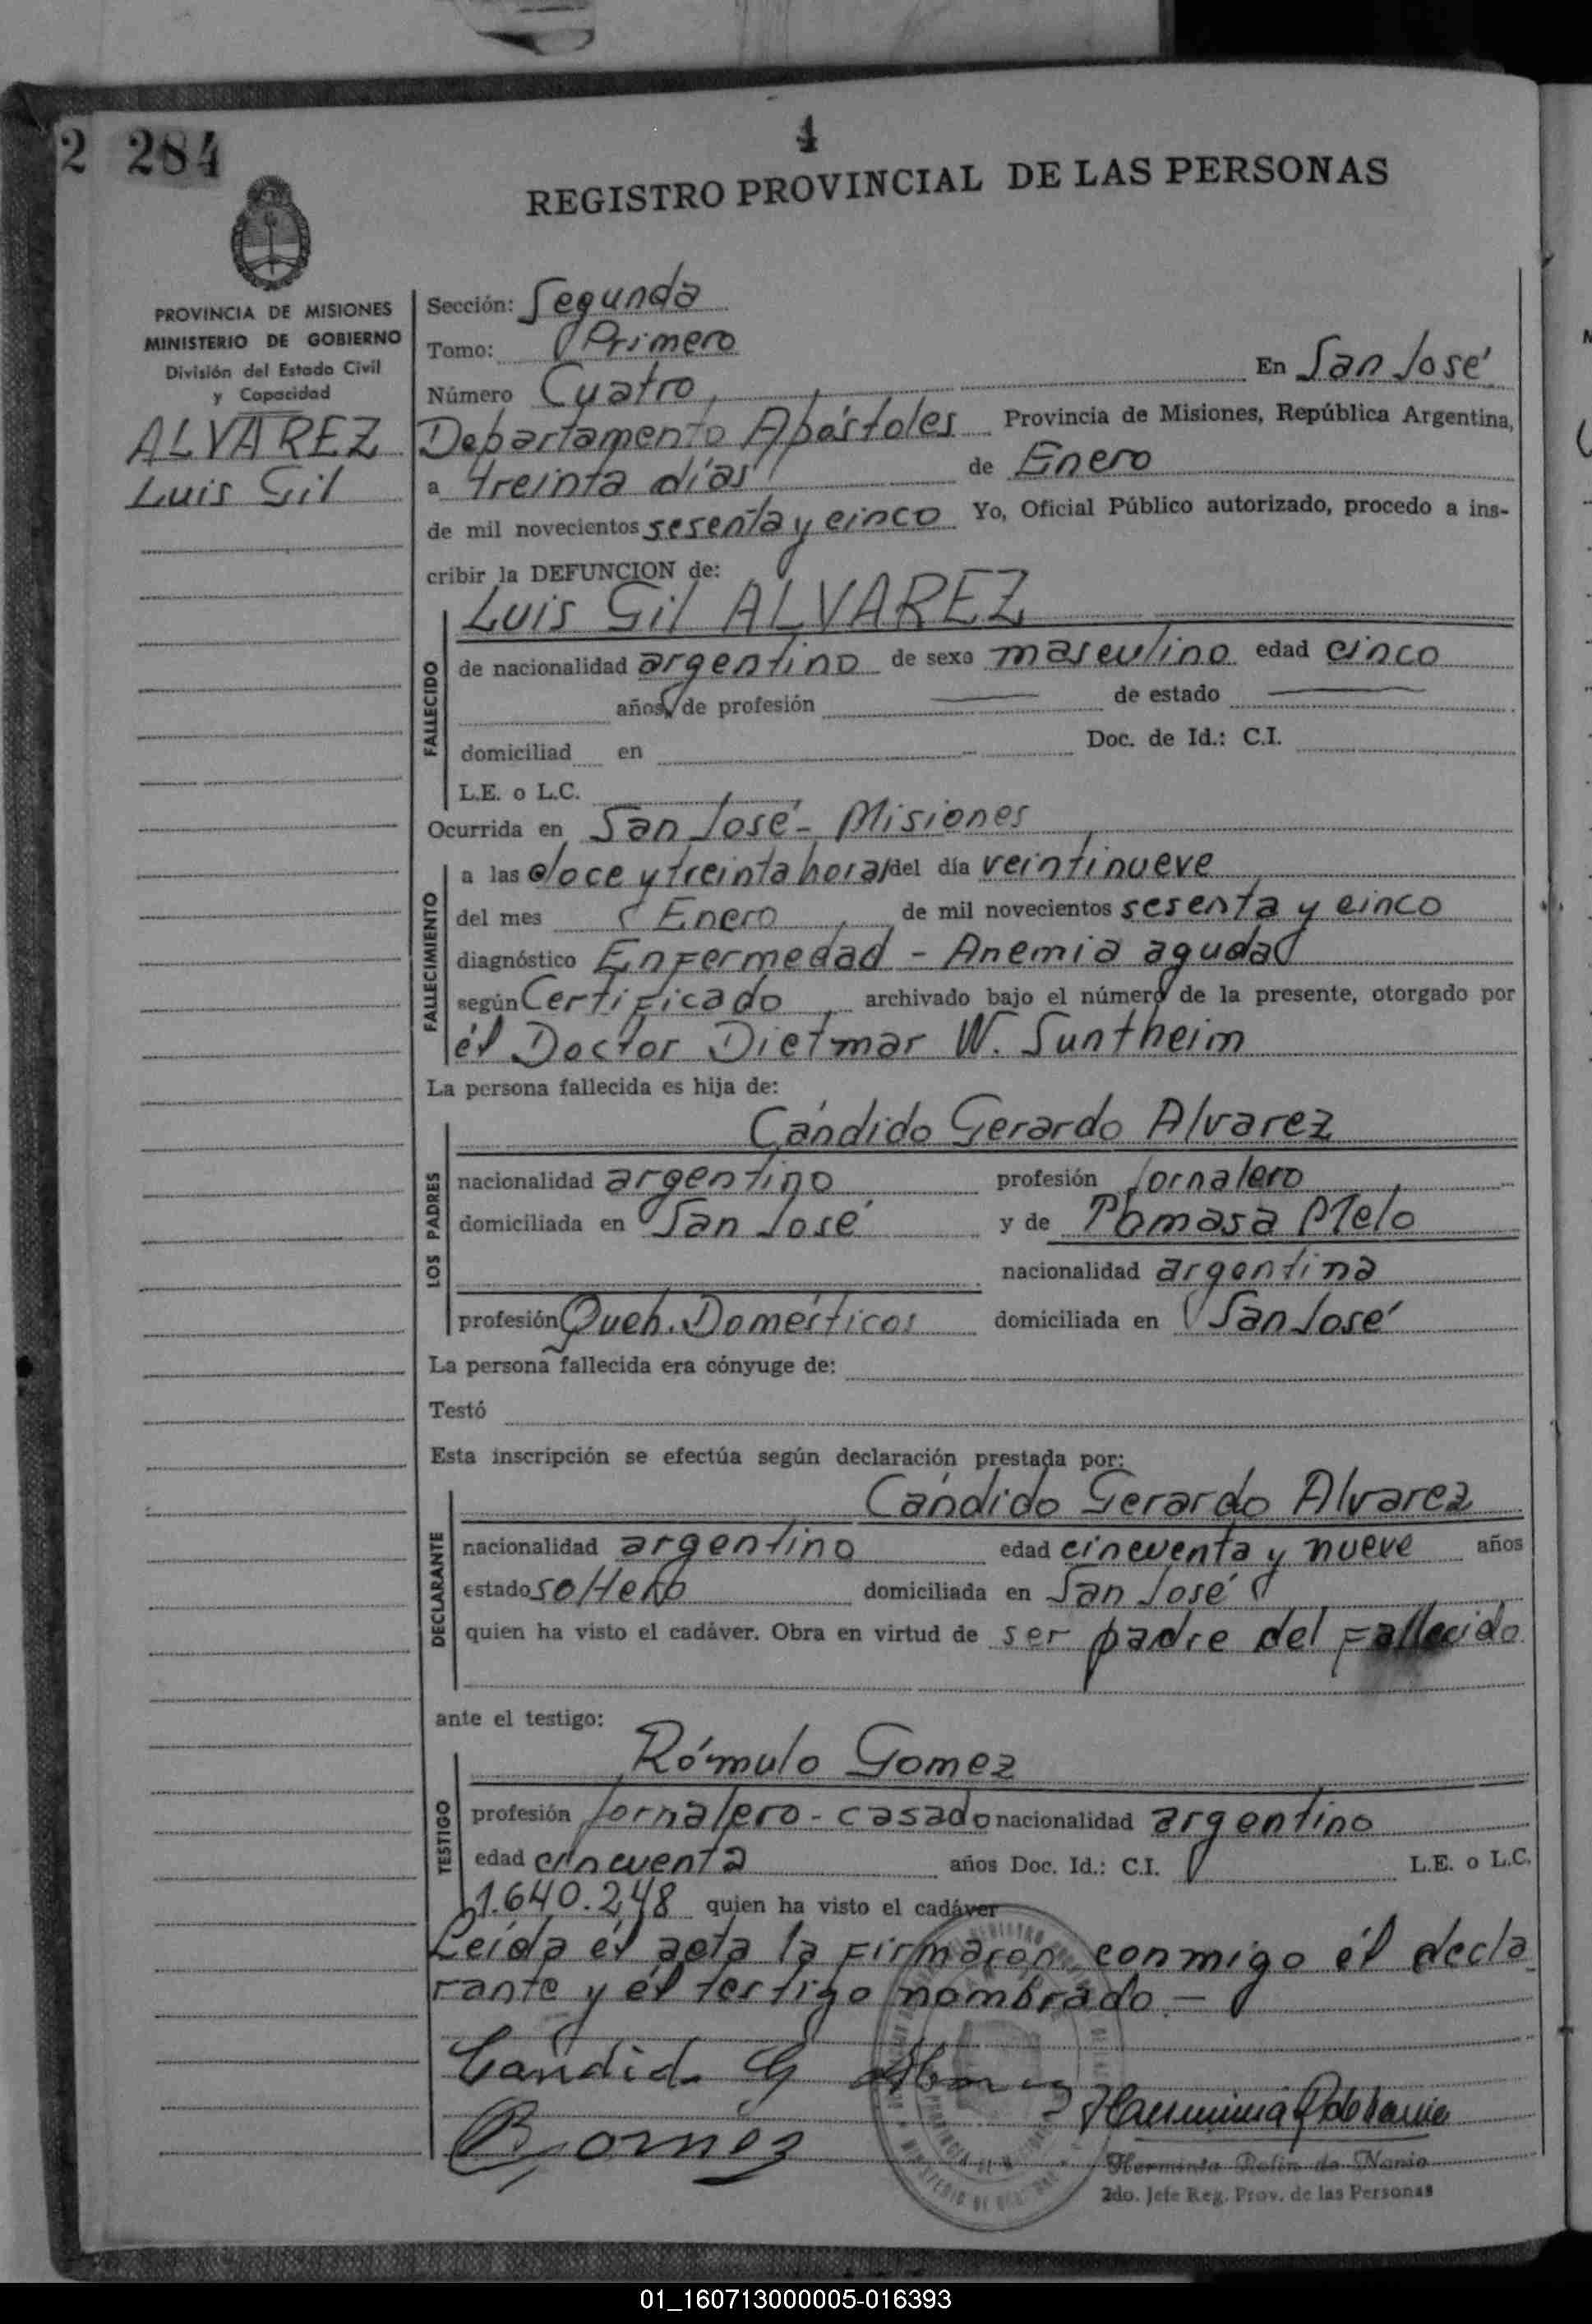 2 284
4
REGISTRO PROVINCIAL DE LAS PERSONAS
PROVINCIA DE MISIONES
MINISTERIO DE GOBIERNO
División del Estado Civil
y Capacidad
ALVAREZ
Luis Gil
Sección: Segunda
Tomo: Primero
Número Cuatro, En San José
Departamento Apóstoles Provincia de Misiones, República Argentina,
a treinta días de Enero
de mil novecientos sesenta y cinco Yo, Oficial Público autorizado, procedo a ins-
cribir la DEFUNCION de:
Luis Gil ALVAREZ
FALLECIDO
de nacionalidad argentino de sexo masculino edad cinco
años, de profesión de estado
domiciliad en Doc. de Id.: C.I.
L.E. o L.C.
Ocurrida en San José - Misiones
FALLECIMIENTO
a las doce y treinta horas del día veintinueve
del mes Enero de mil novecientos sesenta y cinco
diagnóstico Enfermedad - Anemia aguda
según Certificado archivado bajo el número de la presente, otorgado por
él Doctor Dietmar W. Suntheim
La persona fallecida es hija de:
LOS PADRES
Cándido Gerardo Alvarez
nacionalidad argentino profesión Jornalero
domiciliada en San José y de Melo
nacionalidad argentina
profesión Queh. Domésticos domiciliada en San José
La persona fallecida era cónyuge de:
Testó
Esta inscripción se efectúa según declaración prestada por:
DECLARANTE
Cándido Gerardo Alvarez
nacionalidad argentino edad cincuenta y nueve años
estado soltero domiciliada en San José
quien ha visto el cadáver. Obra en virtud de ser padre del fallecido
ante el testigo:
TESTIGO
Rómulo Gomez
profesión Jornalero - casado nacionalidad argentino
edad cincuenta años Doc. Id.: C.I. L.E. o L.C.
1.640.248 quien ha visto el cadáver
Leída él acta la firmaron conmigo él decla
rante y él testigo nombrado. -
Candido G Alvarez
R Gomez
2do. Jefe Reg. Prov. de las Personas
01_160713000005-016393